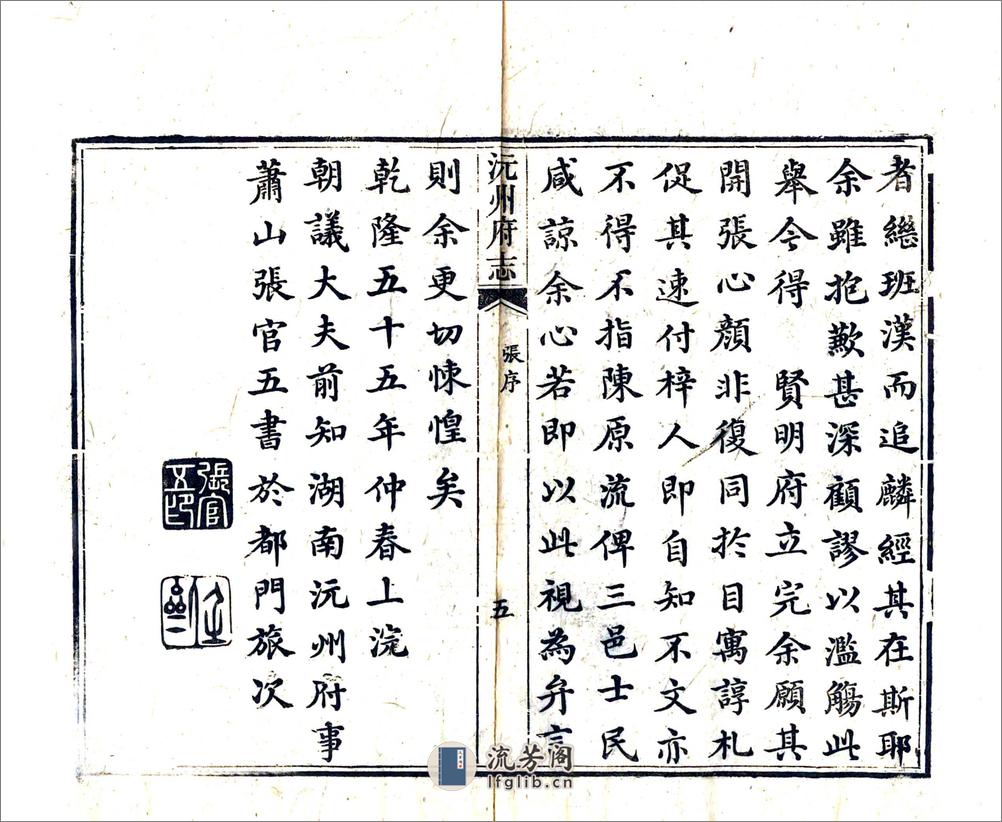 者繼班漢而追麟經其在斯耶
余雖抱歉甚深顧謬以濫觴此
舉今得　賢明府立完余願其
開張心顏非復同於目寓諄札
促其速付梓人即自知不文亦
不得不指陳原流俾三邑士民
咸諒余心若即以此視為弁言
沅州府志
張序
五
則余更切悚惶矣
乾隆五十五年仲春上浣
朝議大夫前知湖南沅州府事
蕭山張官五書於都門旅次
張官五印
流芳阁
lfglib.cn